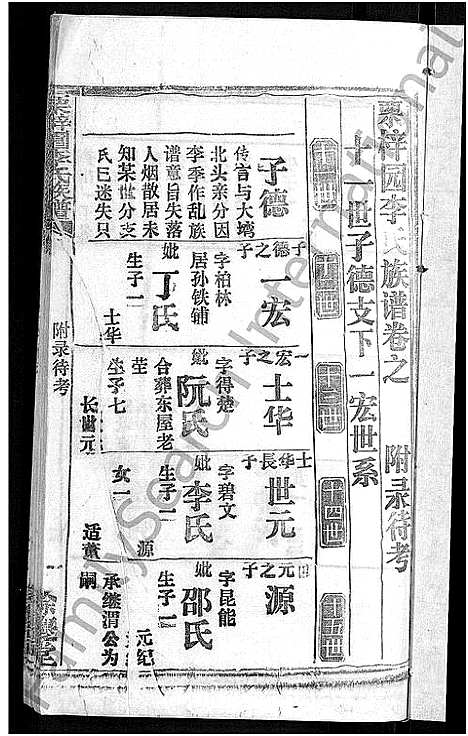 栗梓园李氏族谱卷之 附录待考
十一世子德支下一宏世系
十一世
十二世
十三世
十四世
十五世
子德
传言与大塆
北头亲分因
李季作乱族
谱意旨失落
人烟散居未
知某世分支
氏已迷失只
子德之子
一宏
字柏林
居孙铁辅
妣丁氏
生子一
士华
一宏之子
士华
字得楚
妣阮氏
合葬东屋老
茔
生子七
长世元
士华長子
世元
字碧文
妣李氏
生子一
源
女一
适董
世元之子
源
字昆能
妣邵氏
生子二
元纪
承继渭公为
嗣
栗梓園李氏族譜
附录待考
一
Family Search International